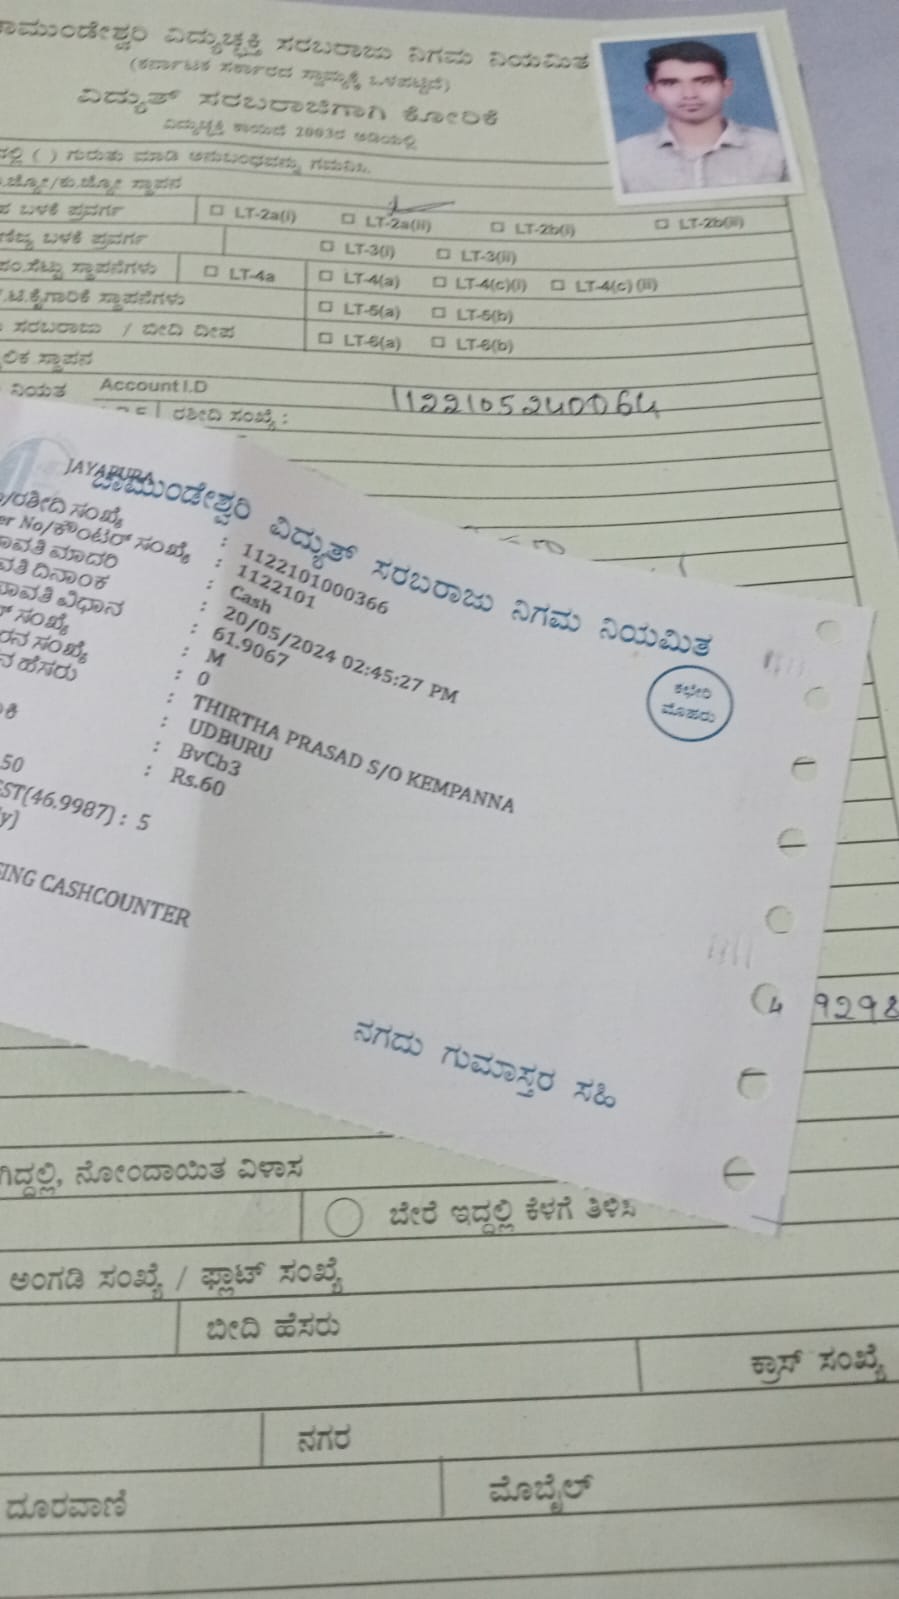 ಚಾಮುಂಡೇಶ್ವರಿ ವಿದ್ಯುಚ್ಛಕ್ತಿ ಸರಬರಾಜು ನಿಗಮ ನಿಯಮಿತ
(ಕರ್ನಾಟಕ ಸರ್ಕಾರದ ಸ್ವಾಮ್ಯಕ್ಕೆ ಒಳಪಟ್ಟಿದೆ)
ವಿದ್ಯುತ್ ಸರಬರಾಜಿಗಾಗಿ ಕೋರಿಕೆ
ವಿದ್ಯುಚ್ಛಕ್ತಿ ಕಾಯಿದೆ 2003ರ ಅಡಿಯಲ್ಲಿ
ದಲ್ಲಿ ( ) ಗುರುತು ಮಾಡಿ ಅನುಬಂಧವನ್ನು ಗಮನಿಸಿ.
ಜ್ಯೋ/ಕು.ಜ್ಯೋ ಸ್ಥಾಪನ
ಬಳಕೆ ಪ್ರವರ್ಗ LT-2a(i) LT-2a(ii) LT-2b(i) LT-2b(ii)
ಬಳಕೆ ಪ್ರವರ್ಗ LT-3(i) LT-3(ii)
ಪಂ.ಸೆಟ್ಟು ಸ್ಥಾಪನೆಗಳು LT-4a LT-4(a) LT-4(c)(i) LT-4(c) (ii)
ಕೈಗಾರಿಕೆ ಸ್ಥಾಪನೆಗಳು LT-5(a) LT-5(b)
ಸರಬರಾಜು / ಬೀದಿ ದೀಪ LT-6(a) LT-6(b)
ಲಿಕ ಸ್ಥಾಪನ
ನಿಯತ Account I.D 1122105240064
ರಶೀದಿ ಸಂಖ್ಯೆ :
JAYAPURA
ಚಾಮುಂಡೇಶ್ವರಿ ವಿದ್ಯುತ್ ಸರಬರಾಜು ನಿಗಮ ನಿಯಮಿತ
/ರಶೀದಿ ಸಂಖ್ಯೆ : 1122101000366
er No/ಕೌಂಟರ್ ಸಂಖ್ಯೆ : 1122101
ಾವತಿ ಮಾದರಿ : Cash
ವತಿ ದಿನಾಂಕ : 20/05/2024 02:45:27 PM
ಾವತಿ ವಿಧಾನ : 61.9067
ಸಂಖ್ಯೆ : M
ರನ ಸಂಖ್ಯೆ : 0
ನ ಹೆಸರು : THIRTHA PRASAD S/O KEMPANNA
: UDBURU
: BvCb3
: Rs.60
.50
EST(46.9987) : 5
y)
SING CASHCOUNTER
ಕಛೇರಿ
ಮೊಹರು
ನಗದು ಗುಮಾಸ್ತರ ಸಹಿ
4 9298
ಗಿದ್ದಲ್ಲಿ, ನೋಂದಾಯಿತ ವಿಳಾಸ
ಬೇರೆ ಇದ್ದಲ್ಲಿ ಕೆಳಗೆ ತಿಳಿಸಿ
ಅಂಗಡಿ ಸಂಖ್ಯೆ / ಫ್ಲಾಟ್ ಸಂಖ್ಯೆ
ಬೀದಿ ಹೆಸರು
ಕ್ರಾಸ್ ಸಂಖ್ಯೆ
ನಗರ
ದೂರವಾಣಿ ಮೊಬೈಲ್